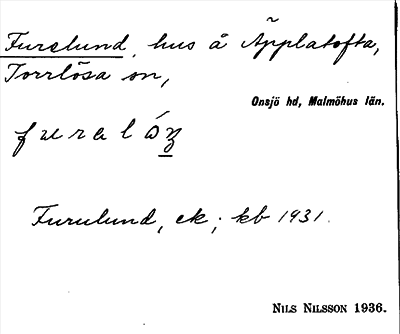 Furelund, hus å Äpplatofta,
Torrlösa sn,
Onsjö hd, Malmöhus län.
Furulund, ek; kb 1931.
NILS NILSSON 1936.